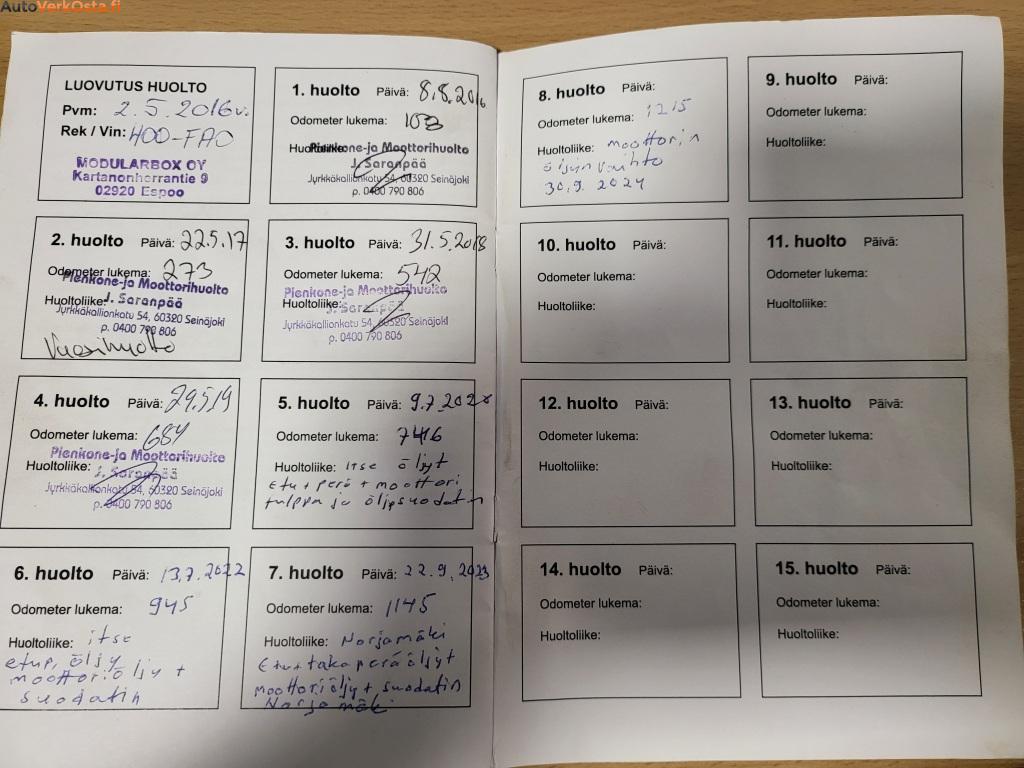 AutoVerkOsta.fi
LUOVUTUS HUOLTO
Pvm: 2.5.2016
Rek / Vin: HOO-FAO
MODULARBOX OY
Kartanonherrantie 9
02920 Espoo
1. huolto Päivä: 8.8.2016
Odometer lukema: 103
Huoltoliike:
Pienkone-ja Moottorihuolto
J. Saranpää
Jyrkkäkallionkatu 54, 60320 Seinäjoki
p. 0400 790 806
2. huolto Päivä: 22.5.17
Odometer lukema: 273
Pienkone-ja Moottorihuolto
Huoltoliike: J. Saranpää
Jyrkkäkallionkatu 54, 60320 Seinäjoki
p. 0400 790 806
Vuosihuolto
3. huolto Päivä: 31.5.2018
Odometer lukema: 542
Pienkone-ja Moottorihuolto
Huoltoliike: J. Saranpää
Jyrkkäkallionkatu 54, 60320 Seinäjoki
p. 0400 790 806
4. huolto Päivä: 29.5.19
Odometer lukema: 684
Pienkone-ja Moottorihuolto
Huoltoliike: J. Saranpää
Jyrkkäkallionkatu 54, 60320 Seinäjoki
p. 0400 790 806
5. huolto Päivä: 9.7.
Odometer lukema:
Huoltoliike: itse öljyt
etu + perä + moottori
tulppa ja öljysuodatin
6. huolto Päivä: 13.7.2022
Odometer lukema: 945
Huoltoliike: itse
etup, öljy
moottoriöljy +
suodatin
7. huolto Päivä: 22.9.2023
Odometer lukema: 1145
Huoltoliike: Norjamäki
Etu + takaperäöljyt
moottoriöljy + suodatin
Norjamäki
8. huolto Päivä:
Odometer lukema: 1215
Huoltoliike: moottorin
öljynvaihto
30.9.2024
9. huolto Päivä:
Odometer lukema:
Huoltoliike:
10. huolto Päivä:
Odometer lukema:
Huoltoliike:
11. huolto Päivä:
Odometer lukema:
Huoltoliike:
12. huolto Päivä:
Odometer lukema:
Huoltoliike:
13. huolto Päivä:
Odometer lukema:
Huoltoliike:
14. huolto Päivä:
Odometer lukema:
Huoltoliike:
15. huolto Päivä:
Odometer lukema:
Huoltoliike: